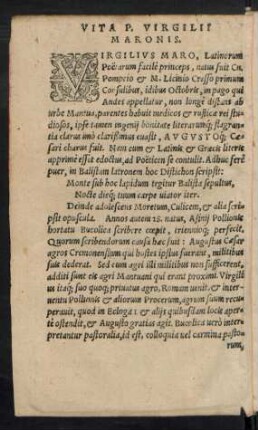 VITA P. VIRGILII
MARONIS.
VIRGILIVS MARO, Latinorum
Poëtarum facilè princeps, natus fuit Cn.
Pompeio & M. Licinio Crasso primum
Consulibus, idibus Octobris, in pago qui
Andes appellatur, non longè distans ab
urbe Mantua, parentes habuit modicos & rusticæ rei studiosos, ipse tamen ingenij bonitate literarumq;
tia clarus imò clarissimus euasit, AVGVSTOq; Cæsari
charus fuit. Nam cum & Latinis & Græcis literis
apprimè esset edoctus, ad Poëticen se contulit. Adhuc ferè
puer, in Balistam latronem hoc Distichon scripsit:
Monte sub hoc lapidum tegitur Balista sepultus,
Nocte dieq; tuum carpe uiator iter.
Deinde adolescens Moretum, Culicem, & alia scripsit
opuscula. Annos autem 28. natus, Asinij Pollionis
hortatu Bucolica scribere cœpit, trienniöq; perfecit,
Quorum scribendorum causa hæc fuit: Augustus Cæsar
agros Cremonensium qui hostes ipsius fuerant, militibus
suis dederat. Sed cum agri illi militibus non sufficerent,
additi sunt eis agri Mantuani qui erant proximi. Virgilius
itaq; suo quoq; priuatus agro, Romam uenit, & interuentu
Pollionis & aliorum Procerum, agrum suum recuperauit,
quod in Ecloga 1 & alijs quibusdam locis aperti
ostendit, & Augusto gratias agit. Bucolica uerò interpretantur
pastoralia, id est, colloquia uel carmina pastorum,